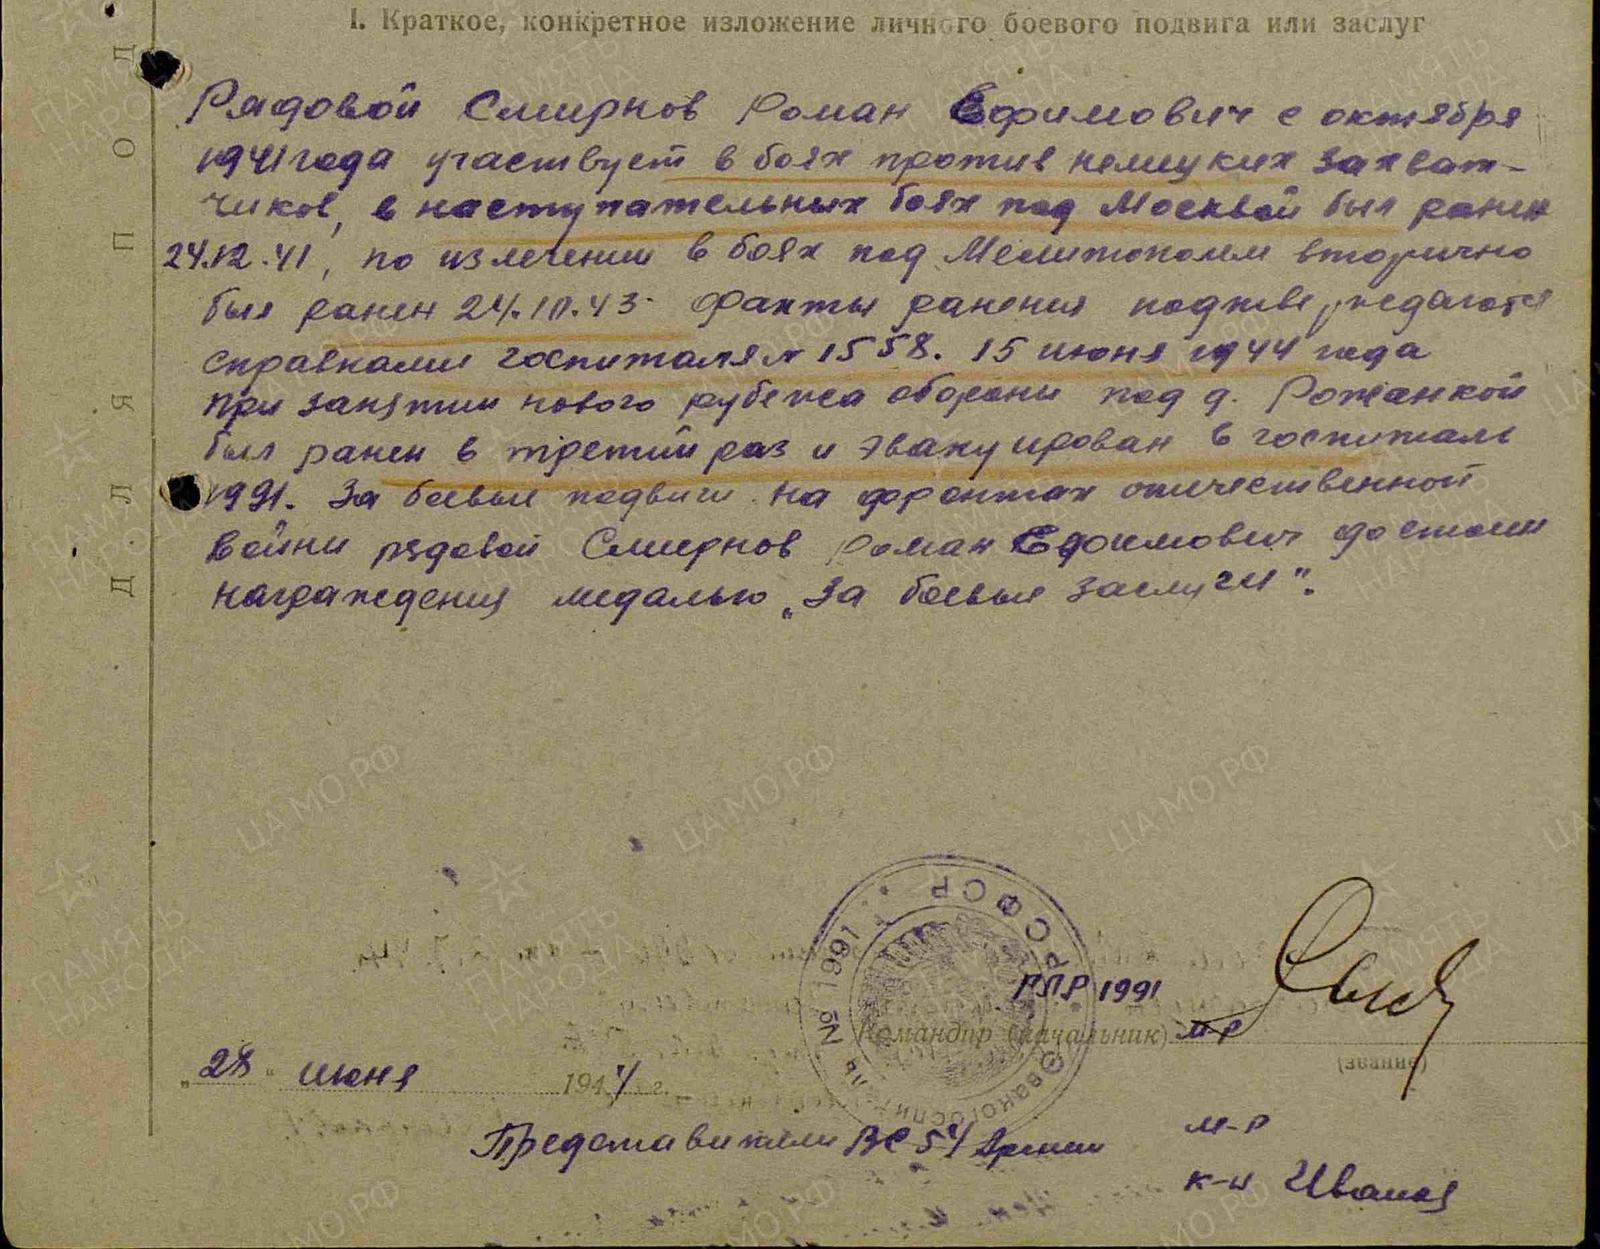 I. Краткое, конкретное изложение личного боевого подвига или заслуг
Рядовой Смирнов Роман Ефимович с октября
1941 года участвует в боях против немецких захват-
чиков, в наступательных боях под Москвой был ранен
24.12.41, по излечении в боях под Мелитополем вторично
был ранен 24.10.43. Факты ранения подтверждаются
справками госпиталя N 1558. 15 июня 1944 года
при занятии нового рубежа обороны под д. Рожанкой
был ранен в третий раз и эвакуирован в госпиталь
1991. За боевые подвиги на фронтах отечественной
войни рядовой Смирнов Роман Ефимович достоин
награждения медалью „За боевые заслуги".
ДЛЯ ПОД
РСФСР
Эвакогоспиталь № 1991
РПР 1991
Командир (начальник) м-р
(звание)
„28" июня 1944 г.
Представители ВС 54 Армии
м-р
к-н
ПАМЯТЬ НАРОДА
ЦА МО РФ